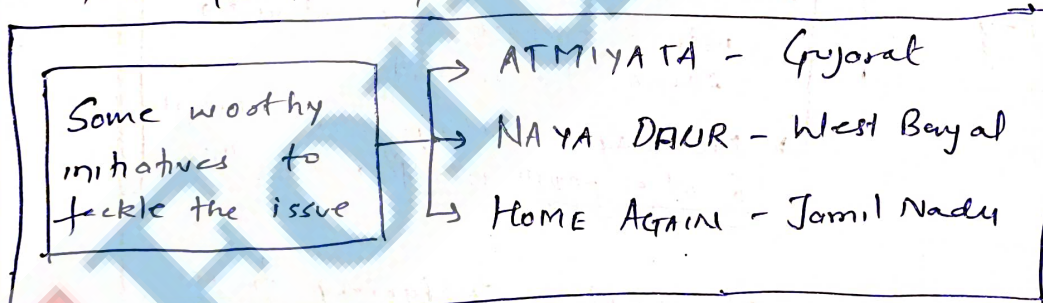 Some worthy
initiatives to
tackle the issue
ATMIYATA - Gujarat
NAYA DAUR - West Bengal
HOME AGAIN - Tamil Nadu